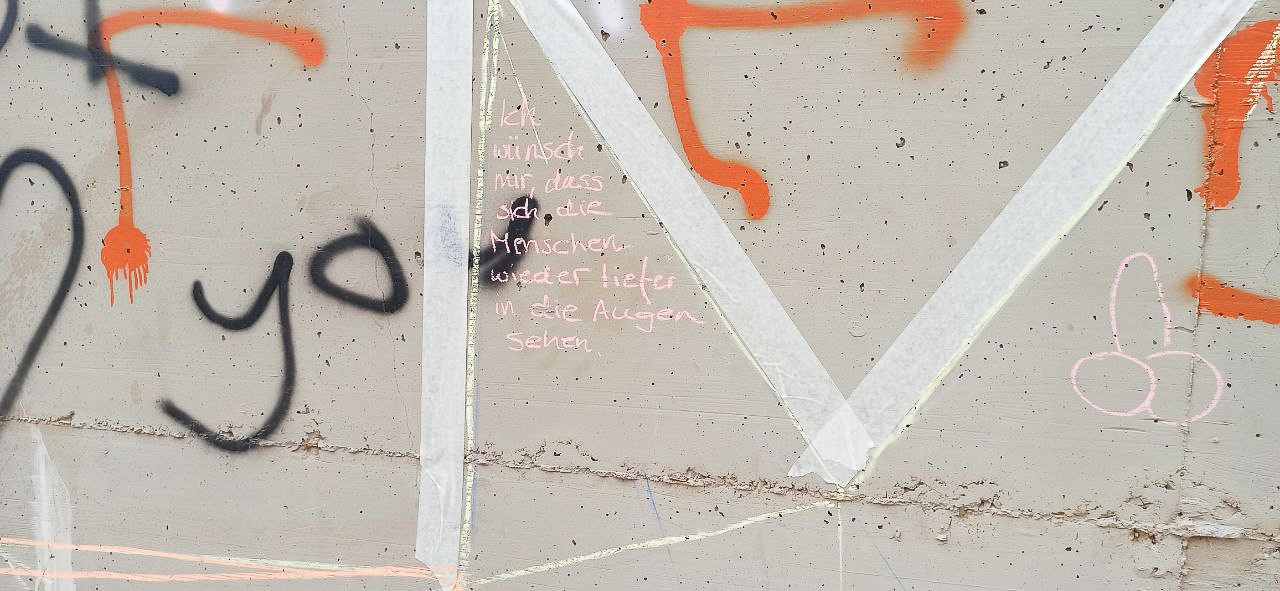 Ich
wünsch
mir, dass
sich die
Menschen
wieder tiefer
in die Augen
sehen.
yo